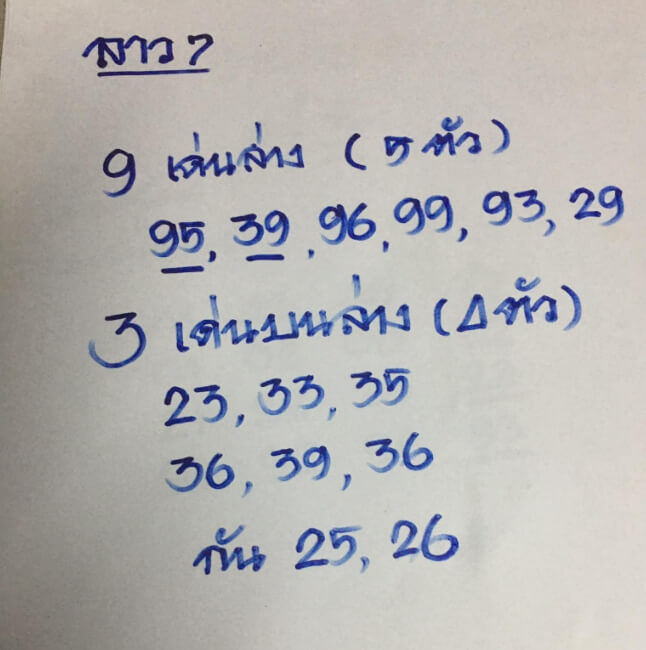 ลาว 7
9 เด่นล่าง (5 ตัว)
95, 39, 96, 99, 93, 29
3 เด่นบนล่าง (Δ ตัว)
23, 33, 35
36, 39, 36
กัน 25, 26